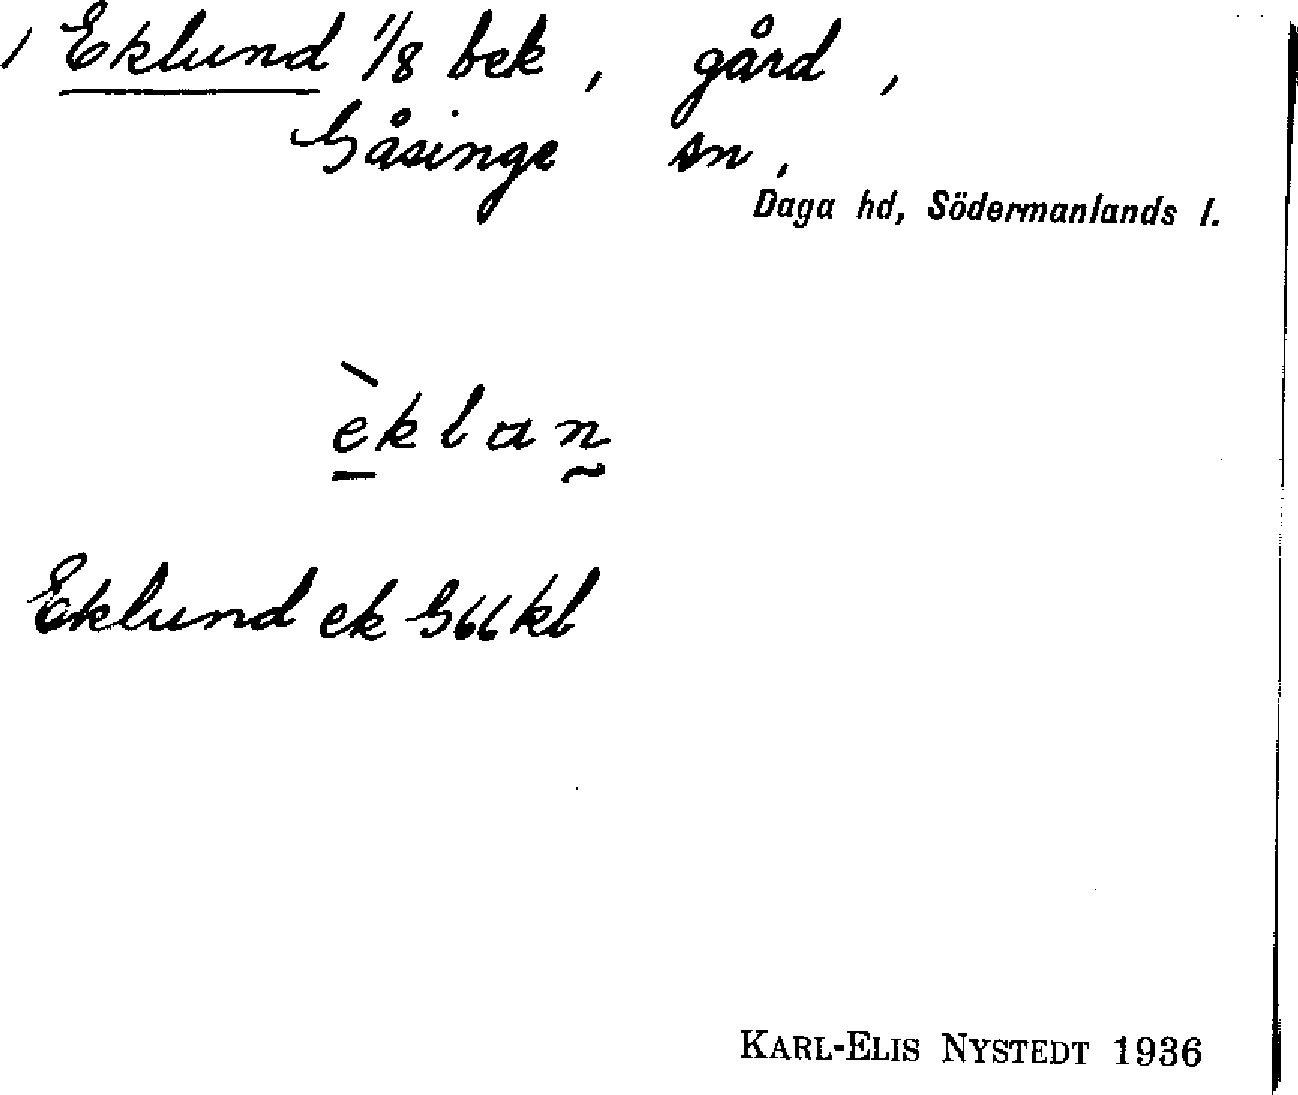 / Eklund 1/8 bek, gård,
Gåsinge sn,
Daga hd, Södermanlands l.
èklan
Eklund ek G66 kl
KARL-ELIS NYSTEDT 1936